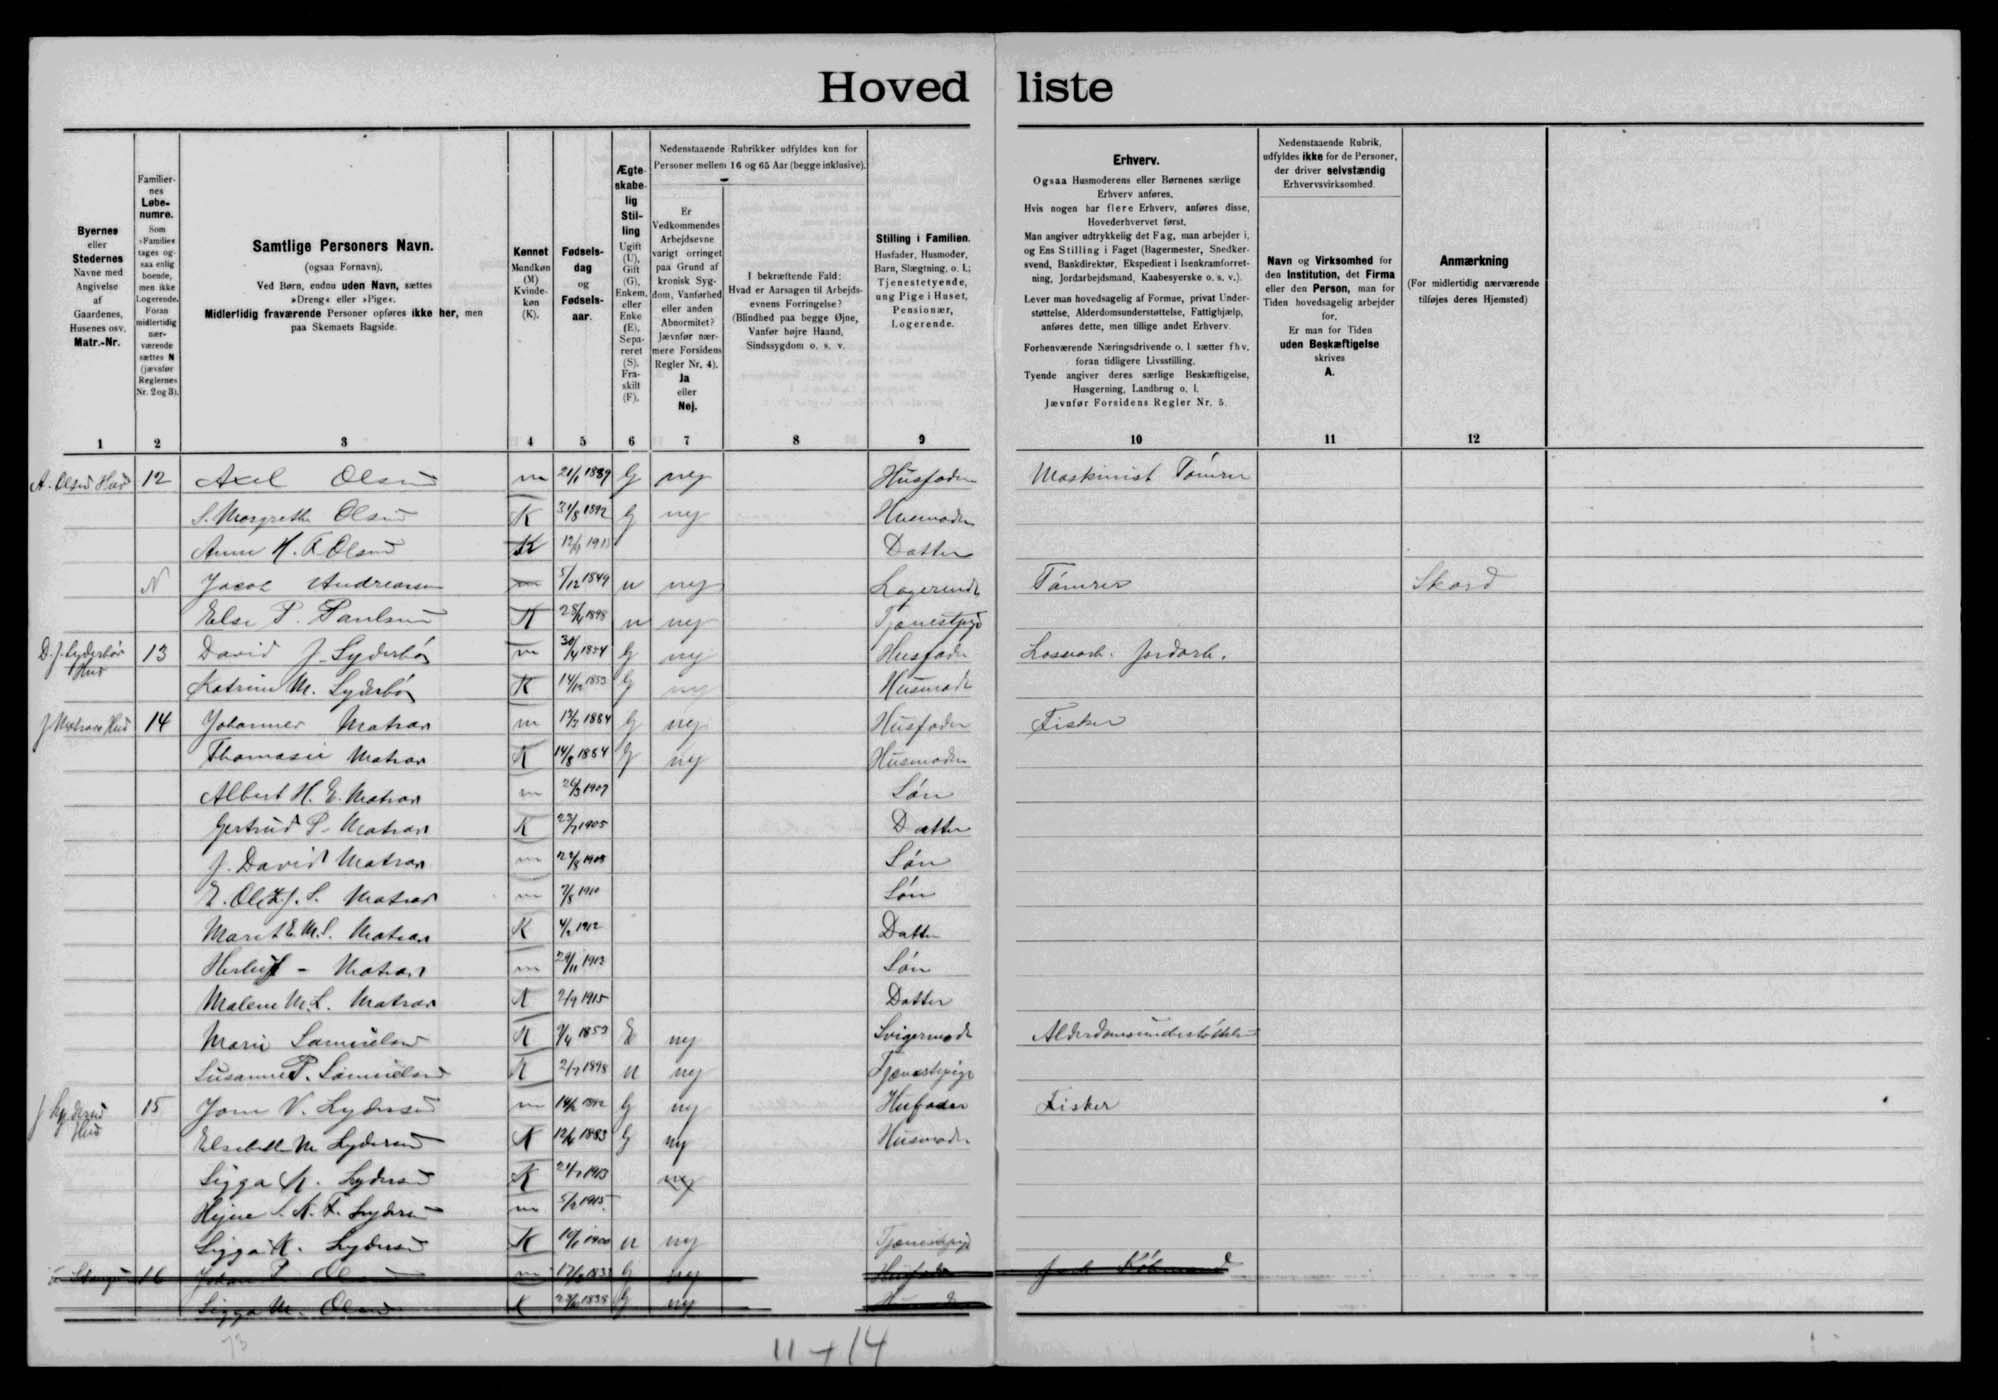 Hovedliste
Byernes
eller
Stedernes
Navne med
Angivelse
af
Gaardenes,
Husenes osv.
Matr.-Nr.
Familier-
nes
Løbe-
numre.
Som
»Familie«
tages og-
saa enlig
boende,
men ikke
Logerende.
Foran
midlertidig
nær-
værende
sættes N
(jævnfør
Reglernes
Nr. 2 og 3).
Samtlige Personers Navn.
(ogsaa Fornavn).
Ved Børn, endnu uden Navn, sættes
»Dreng« eller »Pige«.
Midlertidig fraværende Personer opføres ikke her, men
paa Skemaets Bagside.
Kønnet
Mandkøn
(M)
Kvinde-
køn
(K).
Fødsels-
dag
og
Fødsels-
aar.
Ægte-
skabe-
lig
Stil-
ling
Ugift
(U),
Gift
(G),
Enkem.
eller
Enke
(E),
Sepa-
reret
(S),
Fra-
skilt
(F).
Nedenstaaende Rubrikker udfyldes kun for
Personer mellem 16 og 65 Aar (begge inklusive).
Er
Vedkommendes
Arbejdsevne
varigt forringet
paa Grund af
kronisk Syg-
dom, Vanførhed
eller anden
Abnormitet?
Jævnfør nær-
mere Forsidens
Regler Nr. 4).
Ja
eller
Nej.
I bekræftende Fald:
Hvad er Aarsagen til Arbejds-
evnens Forringelse?
(Blindhed paa begge Øjne,
Vanfør højre Haand,
Sindssygdom o. s. v.
Stilling i Familien.
Husfader, Husmoder,
Barn, Slægtning, o. l.;
Tjenestetyende,
ung Pige i Huset,
Pensionær,
Logerende.
Erhverv.
Ogsaa Husmoderens eller Børnenes særlige
Erhverv anføres.
Hvis nogen har flere Erhverv, anføres disse,
Hovederhvervet først.
Man angiver udtrykkelig det Fag, man arbejder i,
og Ens Stilling i Faget (Bagermester, Snedker-
svend, Bankdirektør, Ekspedient i Isenkramforret-
ning, Jordarbejdsmand, Kaabesyerske o. s. v.).
Lever man hovedsagelig af Formue, privat Under-
støttelse, Alderdomsunderstøttelse, Fattighjælp,
anføres dette, men tillige andet Erhverv.
Forhenværende Næringsdrivende o. l. sætter fhv.
foran tidligere Livsstilling.
Tyende angiver deres særlige Beskæftigelse,
Husgerning, Landbrug o. l.
Jævnfør Forsidens Regler Nr. 5.
Nedenstaaende Rubrik,
udfyldes ikke for de Personer,
der driver selvstændig
Erhvervsvirksomhed.
Navn og Virksomhed for
den Institution, det Firma
eller den Person, man for
Tiden hovedsagelig arbejder
for.
Er man for Tiden
uden Beskæftigelse
skrives
A.
Anmærkning
(For midlertidig nærværende
tilføjes deres Hjemsted)
1 2 3 4 5 6 7 8 9 10 11 12
A. Olsens Hus 12 Axel Olsen m 21/1 1889 G nej Husfader Maskinist Tömrer
S. Margrethe Olsen K 31/8 1892 G nej Husmoder
Anna H. F. Olsen K Datter
N Jacob Andreasen m 5/12 1849 u nej Logerende Tömrer Skord
Else P. Paulsen K 1898 u nej Tjenestpige
D. J. Lyderbör Hus 13 David J. Lyderbör m 30/4 1854 G nej Husfader Losarb. Jordarb.
Katrine M. Lyderbör K 14/12 1853 G nej Husmoder
J. Matras Hus 14 Johannes Matras m 1884 G nej Husfader Fisker
Thomasie Matras K 14/8 1884 G nej Husmoder
Albert H. E. Matras m 1907 Sön
Gertrud S. Matras K 1905 Datter
J. David Matras m 1908 Sön
E. J. S. Matras m 7/8 1910 Sön
Marit E. M. S. Matras K 1912 Datter
Herluf - Matras m 1913 Sön
Malene M. L. Matras K 1915 Datter
Marie Samuelsen K 1853 E nej Svigermoder Alderdomsunderstöttelse
Susanne P. Samuelsen K 1898 u nej Tjenestepige
J. Lydersens Hus 15 Jone V. Lydersen m G nej Husfader Fisker
Elsebeth M Lydersen K 12/6 1883 G nej Husmoder
Sigga M. Lydersen K 1913 nej
Lydersen m 1915
Sigga K. Lydersen K 1900 u nej Tjenestepige
16 Johan P Ol m G nej Husfader Købmand
Sigga M. Olsen K 1838 G nej
73
11 + 14